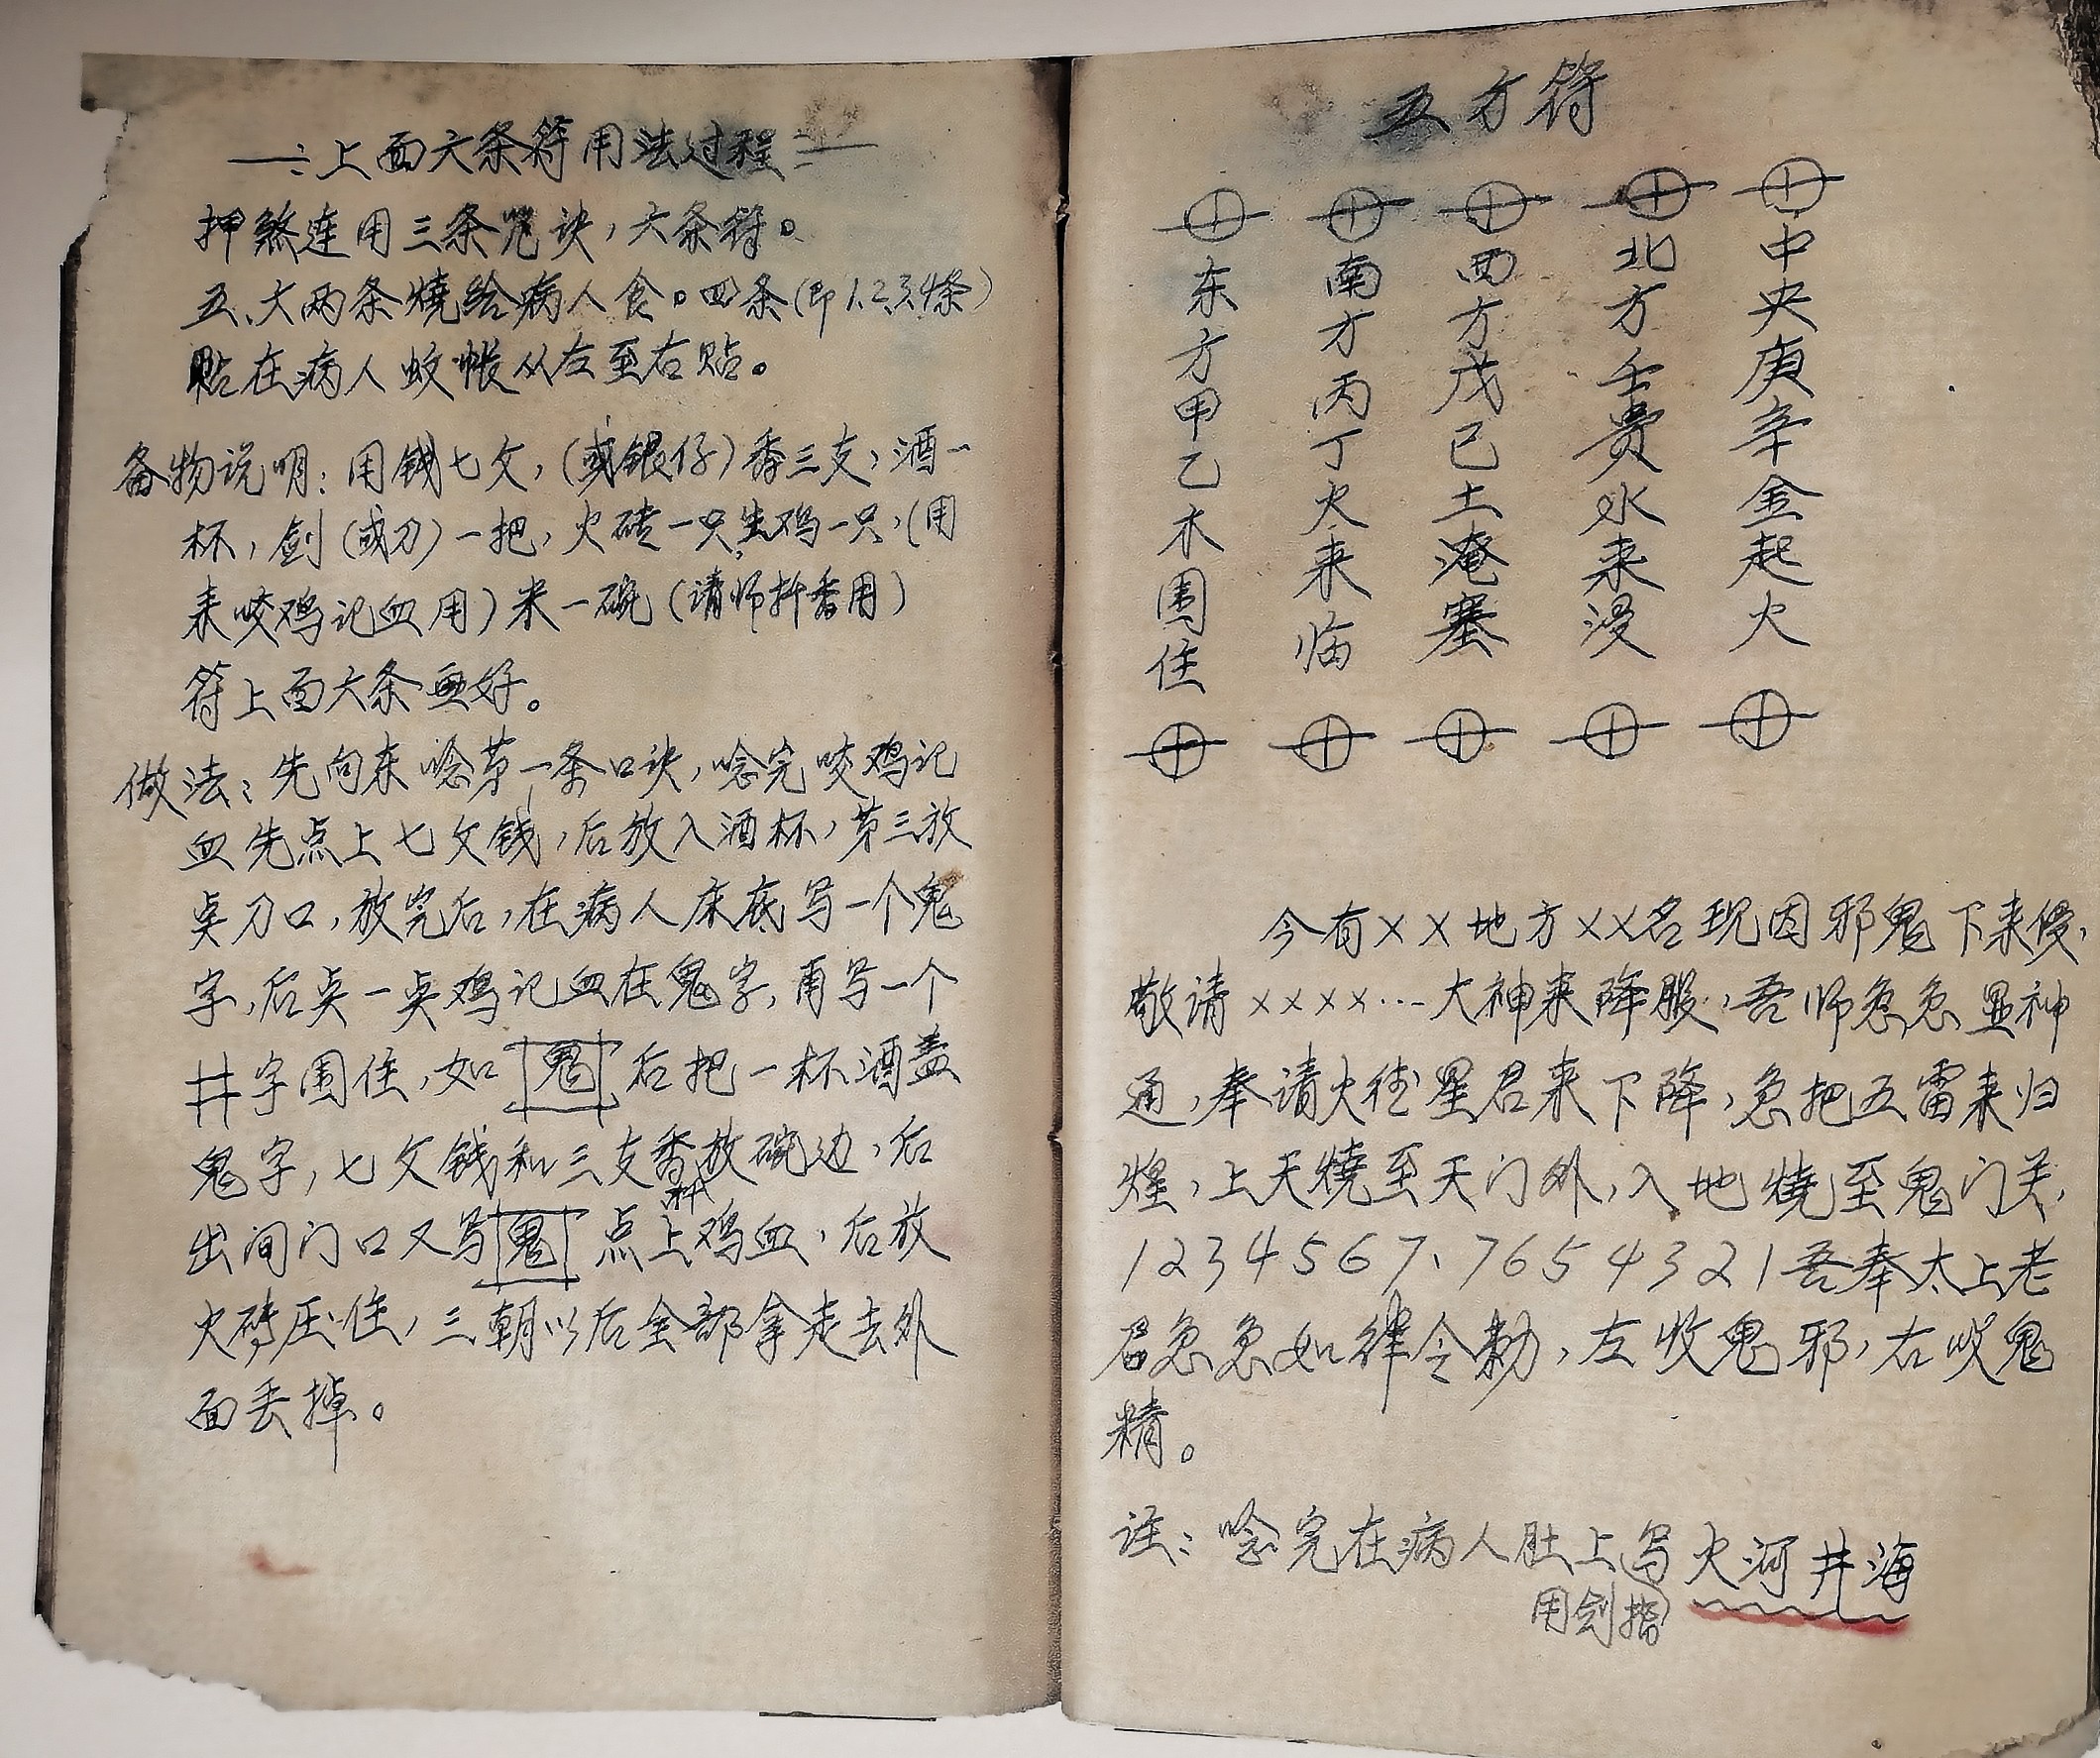 上面六条符用法过程
押煞连用三条咒诀，六条符。
五、六两条燒给病人食。四条（即1.2.3.4条）
贴在病人蚊帐从左至右贴。
备物说明：用钱七文，（或银仔）香三支，酒一
杯，剑（或刀）一把，火砖一只，生鸡一只，（用
来咬鸡记血用）米一碗（请师扦香用）
符上面六条画好。
做法：先向东唸苐一条口诀，唸完咬鸡记
血先点上七文钱，后放入酒杯，苐三放
奌刀口，放完后，在病人床底写一个鬼
字，后奌一奌鸡记血在鬼字，再写一个
井字围住，如鬼后把一杯酒盖
鬼字，七文钱和三支香放碗边，后
杯
出间门口又写鬼点上鸡血，后放
火砖压住，三朝以后全部拿走去外
面丢掉。
五方符
东方甲乙木围住
南方丙丁火来临
西方戊己土淹塞
北方壬贵水来浸
中央庚辛金起火
今有××地方××名现因邪鬼下来侵，
敬请××××…大神来降服，吾师急急显神
通，奉请火德星君来下降，急把五雷来归
煌，上天燒至天门外，入地燒至鬼门关，
1234567、7654321吾奉太上老
君急急如律令勅，左收鬼邪，右收鬼
精。
注：唸完在病人肚上写火河井海
用剑指